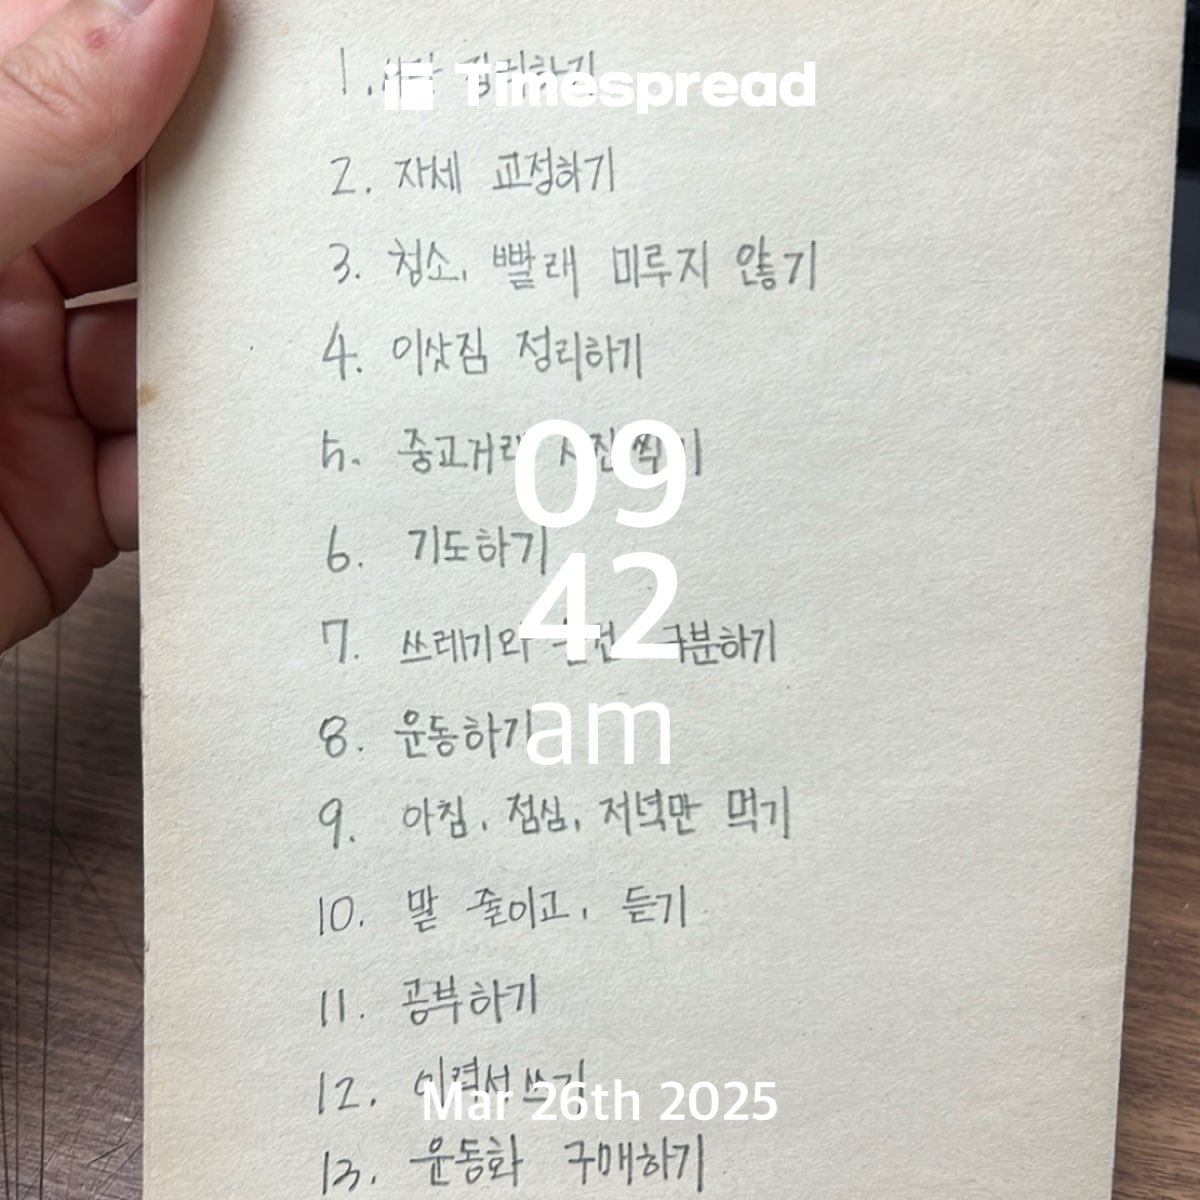 1. 정리하기
Timespread
2. 자세 교정하기
3. 청소, 빨래 미루지 않기
4. 이삿짐 정리하기
5. 중고거래 사진 찍기
09
6. 기도하기
42
7. 쓰레기와 물건 구분하기
8. 운동하기
am
9. 아침, 점심, 저녁만 먹기
10. 말 줄이고, 듣기
11. 공부하기
12. 이력서 쓰기
Mar 26th 2025
13. 운동화 구매하기